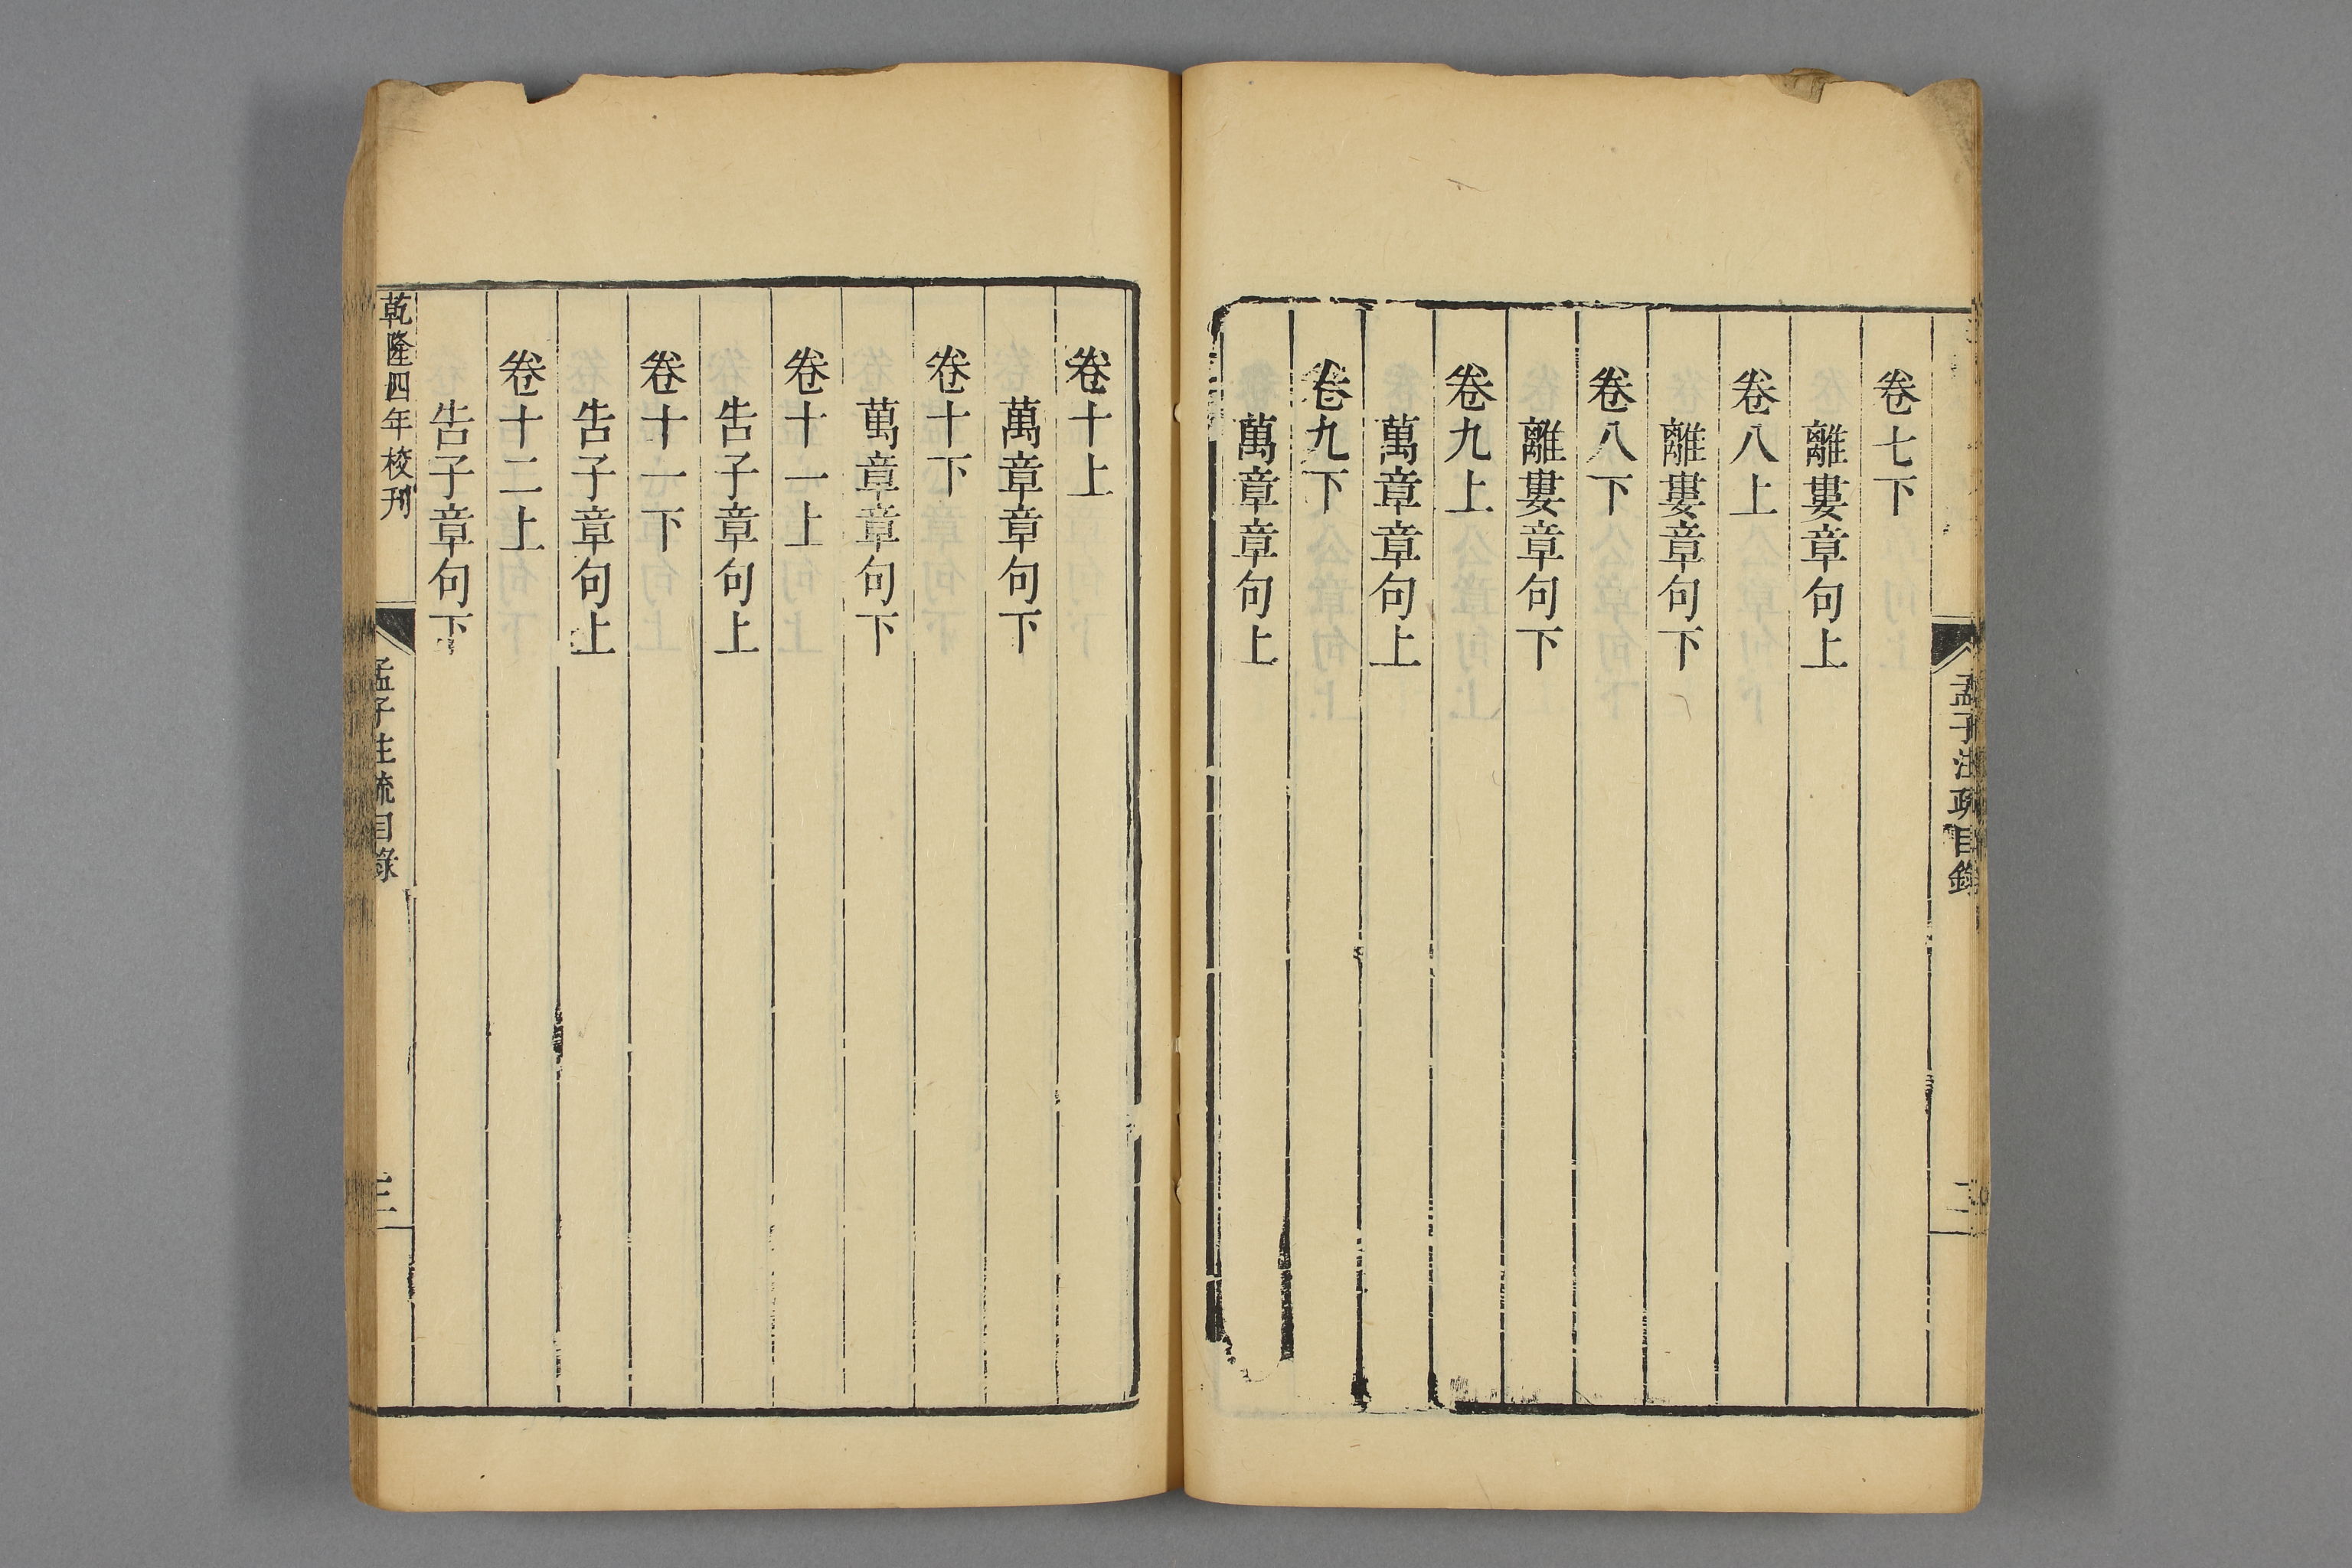 孟子注疏目錄
二
卷七下
離婁章句上
卷八上
離婁章句下
卷八下
離婁章句下
卷九上
萬章章句上
卷九下
萬章章句上
卷十上
萬章章句下
卷十下
萬章章句下
卷十一上
告子章句上
卷十一下
告子章句上
卷十二上
告子章句下
乾隆四年校刊
孟子注疏目錄
三